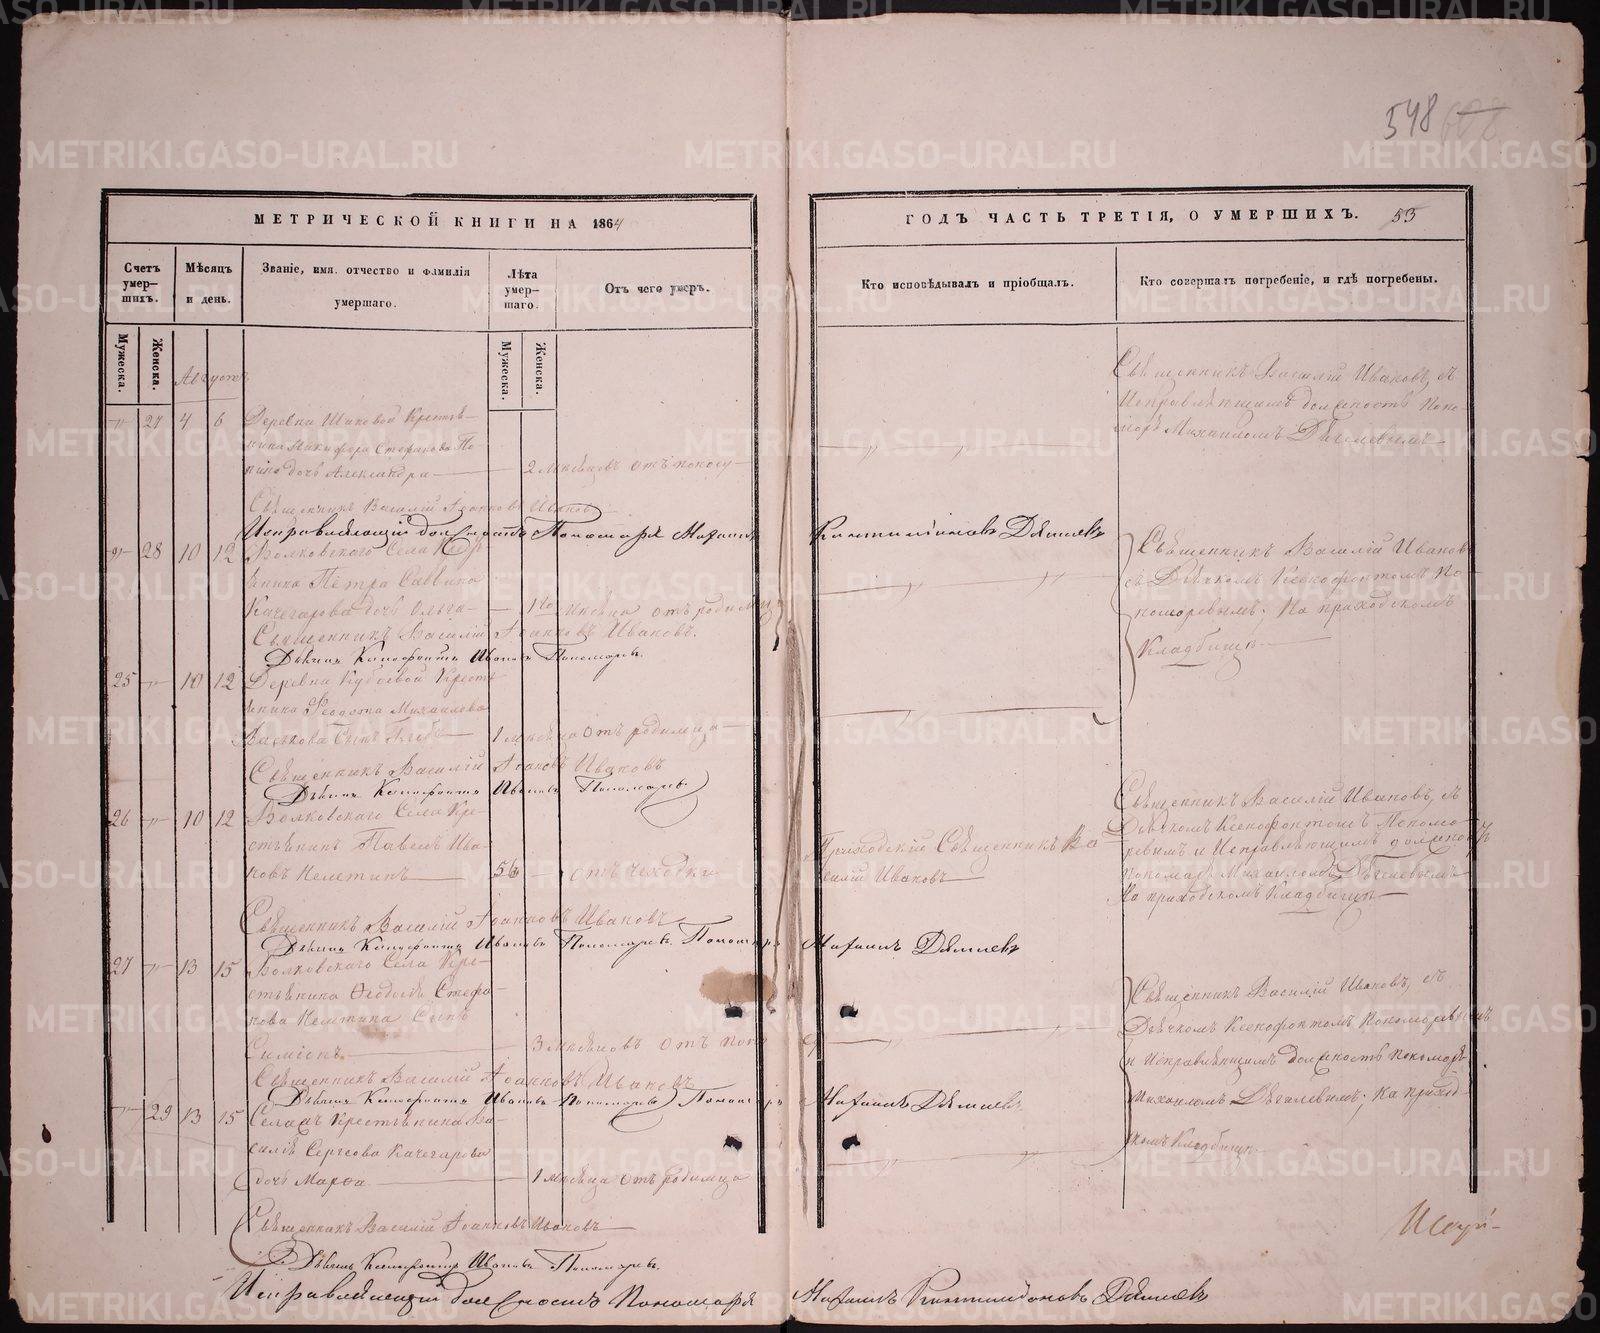 548
МЕТРИЧЕСКОЙ КНИГИ НА 1864
ГОДЪ ЧАСТЬ ТРЕТІЯ, О УМЕРШИХЪ. 53
Счетъ умер-шихъ.
Мѣсяцъ и день.
Званіе, имя, отчество и фамилія умершаго.
Лѣта умер-шаго.
Отъ чего умеръ.
Кто исповѣдывалъ и пріобщалъ.
Кто совершалъ погребеніе, и гдѣ погребены.
Мужеска.
Женска.
Мужеска.
Женска.
Августъ
27 4 6 Деревни Шиковой Крестья-
нина Никифора Стефанова По
пина дочь Александра 2 мѣсяцовъ отъ поносу
Священникъ Василій Ивановъ, съ
Исправляющимъ должность Поно
моря Михаиломъ Дягилевымъ
Священникъ Василій Іоанновъ Ивановъ
Исправляющій должность Пономаря Михаилъ Дягилевъ
28 10 12 Волковского Села Кре
янина Петра Саввина
Качегарова дочь Ольга 1го мѣсяца отъ родимца
Священникъ Василій Ивановъ
съ Дьячкомъ Ксенофонтомъ По-
номаревымъ. На приходскомъ
Кладбищѣ
Священникъ Василій Іоанновъ Ивановъ.
Дьячекъ Ксенофонтъ Ивановъ Пономаревъ.
25 10 12 Деревни Кресть
янина Феодота Михаилова
Сынъ Глѣбъ 1 мѣсяца отъ родимца
Священникъ Василій Іоанновъ Ивановъ
Дьячекъ Ксенофонтъ Ивановъ Пономаревъ
26 10 12 Волковскаго Села Кре-
стьянинъ Павелъ Ива-
новъ 56 отъ чехотки
Приходскій Священникъ Ва
силій Ивановъ
Священникъ Василій Ивановъ, съ
Дьячкомъ Ксенофонтомъ Понома-
ревымъ и Исправляющимъ должность
пономаря Михаиломъ Дягилевымъ
На приходскомъ Кладбищѣ
Священникъ Василій Іоанновъ Ивановъ
Дьячекъ Ксенофонтъ Ивановъ Пономаревъ. Пономарь Михаилъ Дягилевъ
27 13 15 Волковскаго Села Кре-
стьянина Стефа-
нова Сынъ
Симеонъ 3 мѣсяцовъ отъ
Священникъ Василій Ивановъ, съ
Дьячкомъ Ксенофонтомъ Пономаревымъ
и Исправляющимъ должность пономаря
Михаиломъ Дягилевымъ, На приход-
скомъ Кладбищѣ
Священникъ Василій Іоанновъ Ивановъ
Дьячекъ Ксенофонтъ Ивановъ Пономаревъ Пономарь Михаилъ Дягилевъ
29 13 15 Крестьянина Ва
силія Сергеева Качегарова
дочь Марфа 1 мѣсяца отъ родимца
Священникъ Василій Іоанновъ Ивановъ
Дьячекъ Ксенофонтъ Ивановъ Пономаревъ.
Исправляющій должность Пономаря Михаилъ Дягилевъ
METRIKI.GASO-URAL.RU